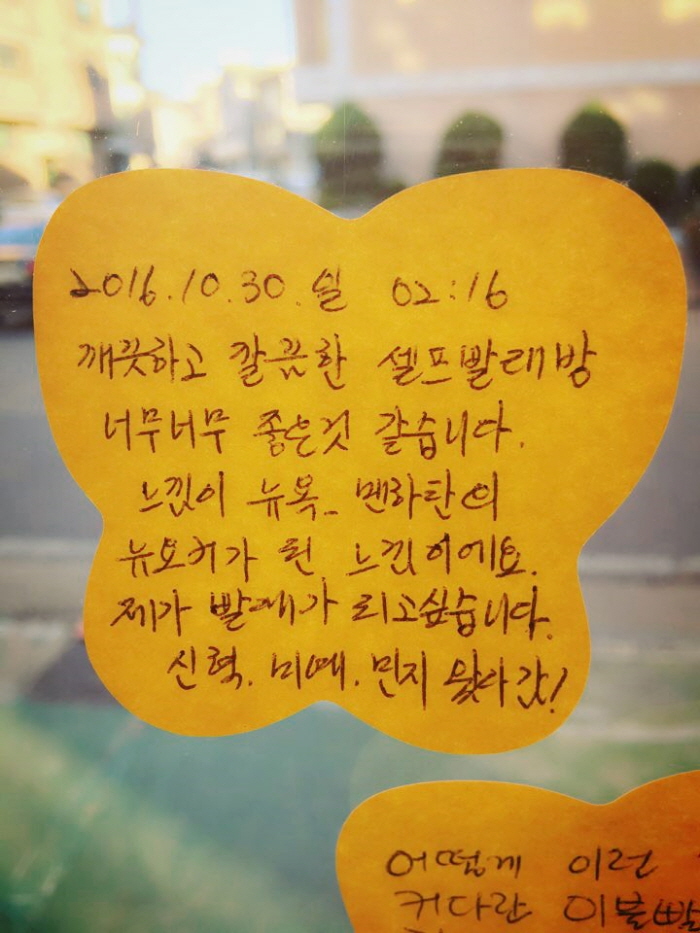 2016.10.30.일 02:16
깨끗하고 깔끔한 셀프빨래방
너무너무 좋은것 같습니다.
느낌이 뉴욕_ 멘하탄의
뉴요커가 된 느낌이에요.
제가 빨래가 되고싶습니다.
신혁. 미애. 민지 왔다감!
어떻게 이런
커다란 이불빨